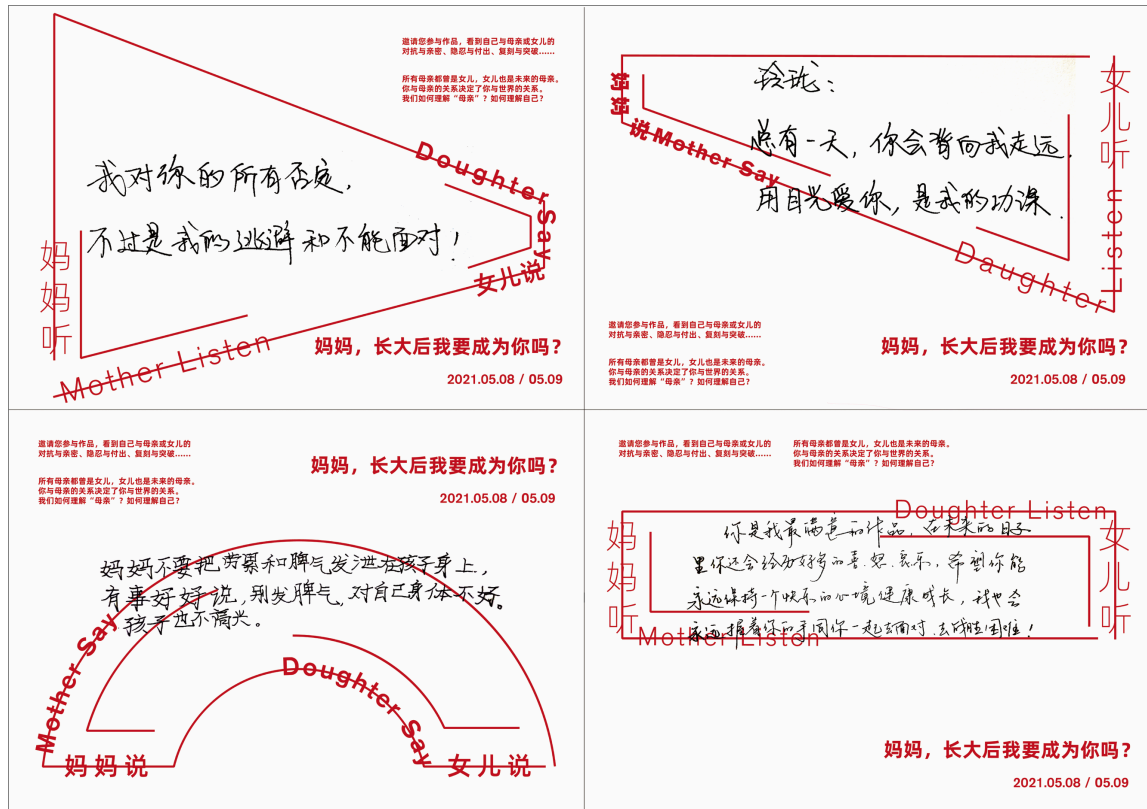 邀请您参与作品，看到自己与母亲或女儿的
对抗与亲密、隐忍与付出、复刻与突破……
所有母亲都曾是女儿，女儿也是未来的母亲。
你与母亲的关系决定了你与世界的关系。
我们如何理解“母亲”？如何理解自己？
Doughter Say
女儿说
我对你的所有否定，
不过是我的逃避和不能面对！
妈妈听
Mother Listen
妈妈，长大后我要成为你吗？
2021.05.08 / 05.09
妈妈说 Mother Say
玲珑：
总有一天，你会背向我走远.
用目光爱你，是我的功课.
女儿听
Daughter Listen
邀请您参与作品，看到自己与母亲或女儿的
对抗与亲密、隐忍与付出、复刻与突破……
所有母亲都曾是女儿，女儿也是未来的母亲。
你与母亲的关系决定了你与世界的关系。
我们如何理解“母亲”？如何理解自己？
妈妈，长大后我要成为你吗？
2021.05.08 / 05.09
邀请您参与作品，看到自己与母亲或女儿的
对抗与亲密、隐忍与付出、复刻与突破……
所有母亲都曾是女儿，女儿也是未来的母亲。
你与母亲的关系决定了你与世界的关系。
我们如何理解“母亲”？如何理解自己？
妈妈，长大后我要成为你吗？
2021.05.08 / 05.09
妈妈不要把劳累和脾气发泄在孩子身上，
有事好好说，别发脾气，对自己身体不好。
孩子也不高兴。
Mother Say
妈妈说
Doughter Say
女儿说
邀请您参与作品，看到自己与母亲或女儿的
对抗与亲密、隐忍与付出、复刻与突破……
所有母亲都曾是女儿，女儿也是未来的母亲。
你与母亲的关系决定了你与世界的关系。
我们如何理解“母亲”？如何理解自己？
Doughter Listen
女儿听
你是我最满意的作品，在未来的日子
里你还会经历好多的喜、怒、哀乐，希望你能
永远保持一个快乐的心境健康成长，我也会
永远握着你的手同你一起去面对、去战胜困难！
妈妈听
Mother Listen
妈妈，长大后我要成为你吗？
2021.05.08 / 05.09